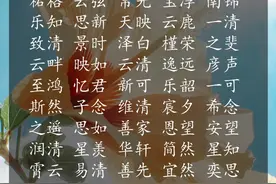 祐格 云弦 常先 玉浮 南锦
乐知 思新 天映 云鹿 一清
致清 景时 泽白 槿荣 之斐
云畔 映如 云清 逸远 彦声
至鸿 忆君 新可 乐韶 一可
斯然 子念 维清 宸夕 希念
之遥 思如 善家 恩望 安望
润清 星羡 华轩 简然 星知
霄云 易清 善先 宜然 奕思